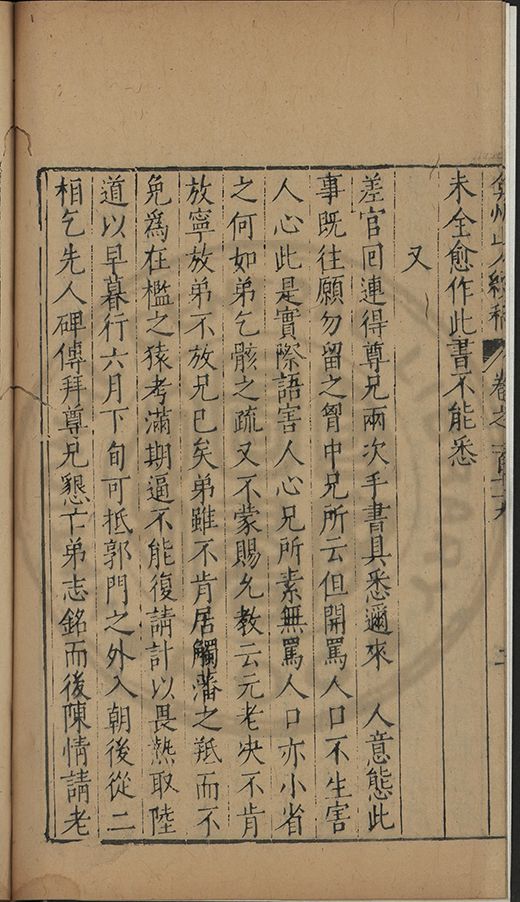 弇州山人續稿 卷之一百 二
未全愈作此書不能悉
又
差官回連得尊兄兩次手書具悉邇來 人意態此
事既往願勿留之胷中兄所云但開罵人口不生害
人心此是實際語害人心兄所素無罵人口亦小省
之何如弟乞骸之疏又不蒙賜允教云元老央不肯
放寧放弟不放兄已矣弟雖不肯居觸藩之羝而不
免為在檻之猿考滿期逼不能復請計以畏熱取陸
道以早暮行六月下旬可抵郭門之外入朝後從二
相乞先人碑傳拜尊兄懇亡弟志銘而後陳情請老